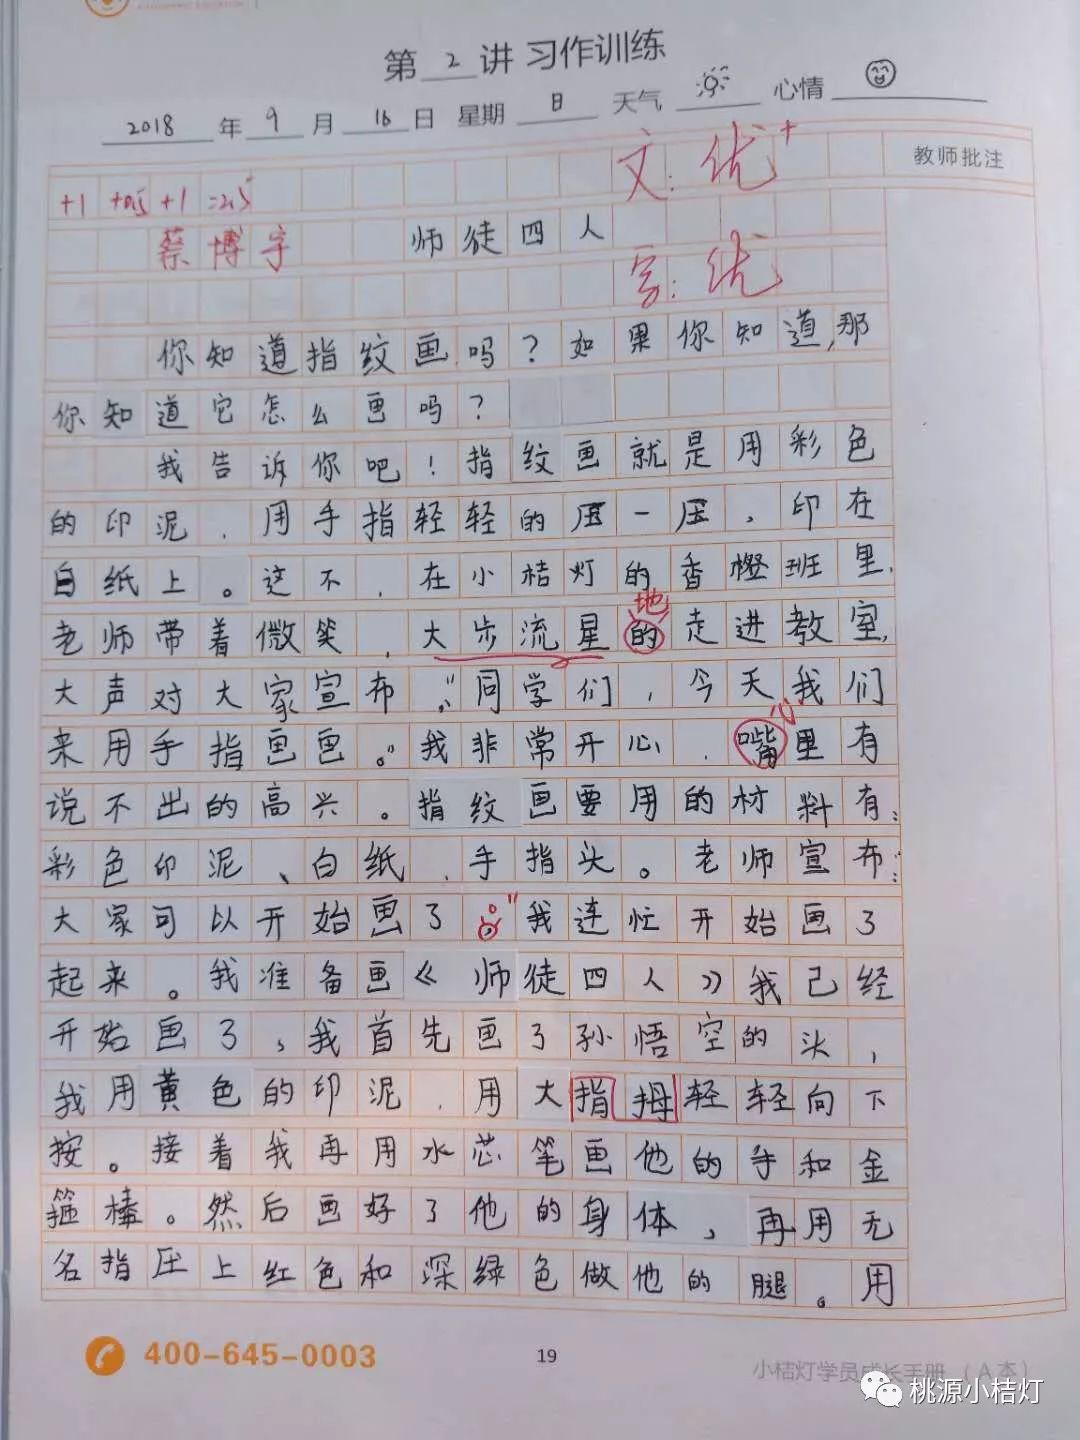 第2讲 习作训练
2018年9月16日 星期日 天气 心情
教师批注
文:优+
+1 +0.5 +1 =2.5
蔡博宇 师徒四人
字:优
你知道指纹画吗?如果你知道,那
你知道它怎么画吗?
我告诉你吧!指纹画就是用彩色
的印泥,用手指轻轻的压一压,印在
白纸上。这不,在小桔灯的香橙班里,
地
老师带着微笑,大步流星的走进教室,
大声对大家宣布:“同学们,今天我们
心
来用手指画画。”我非常开心,嘴里有
说不出的高兴。指纹画要用的材料有:
彩色印泥、白纸、手指头。老师宣布:
大家可以开始画了。”我连忙开始画了
起来。我准备画《师徒四人》我已经
开始画了,我首先画了孙悟空的头,
我用黄色的印泥,用大指拇轻轻向下
按。接着我再用水芯笔画他的手和金
箍棒。然后画好了他的身体,再用无
名指压上红色和深绿色做他的腿。用
400-645-0003
19
小桔灯学员成长手册(A本)
桃源小桔灯